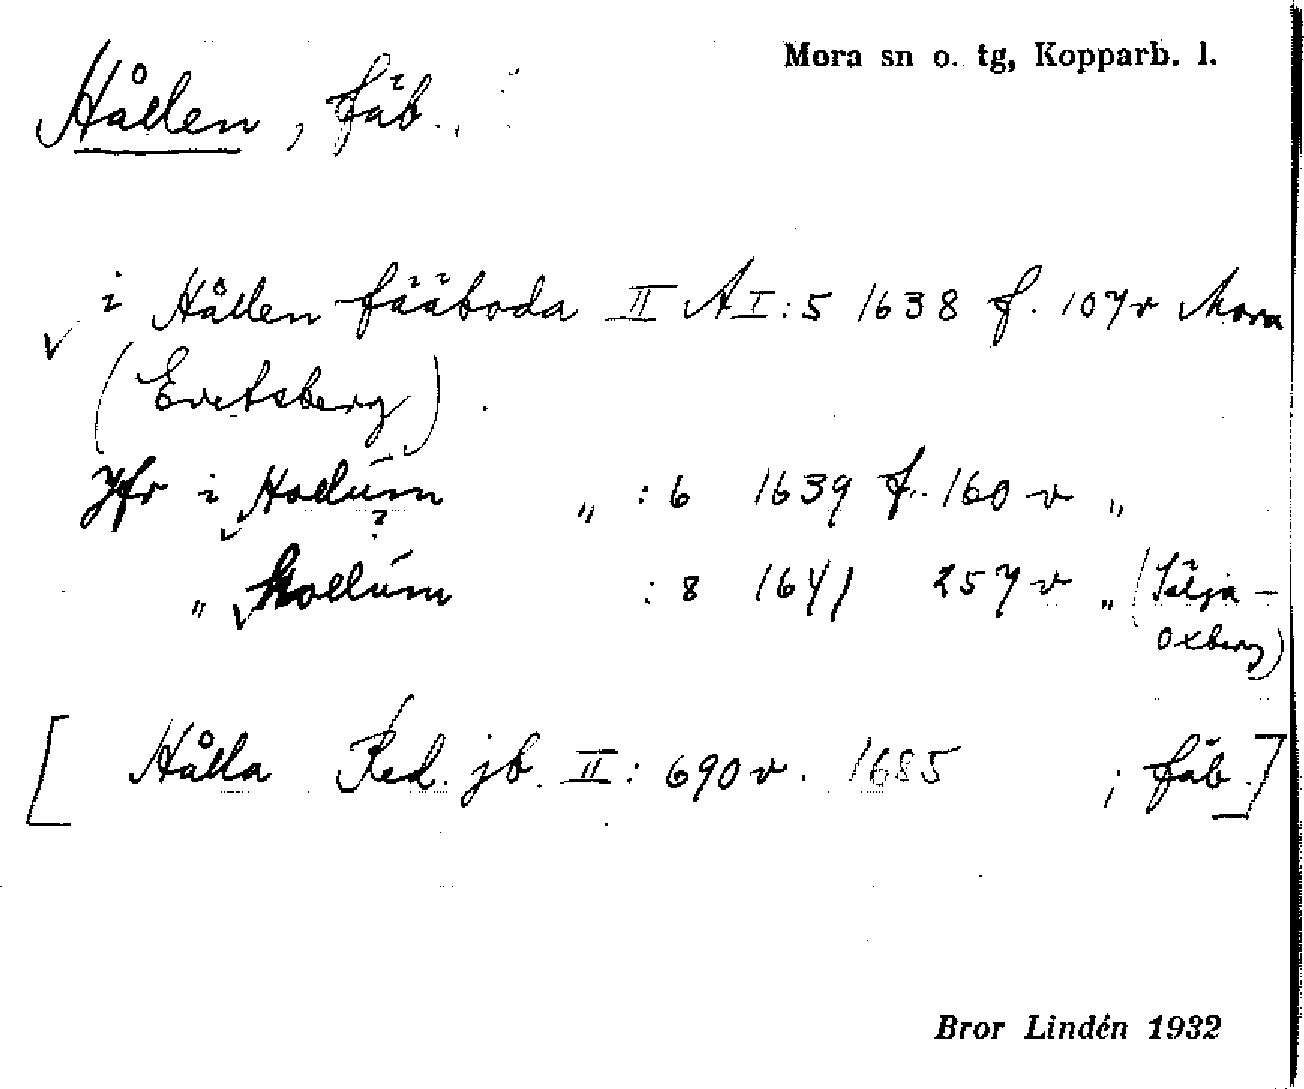 Mora sn o. tg, Kopparb. l.
Hållen, fäb.
i Hållen fääboda II A I:5 1638 f. 107v Mora
(Evertsberg).
Jfr i Hollúm „ :6 1639 f. 160 v „
?
„ Hollúm :8 1641 257 v „ (Sälja-
Oxberg)
[ Hålla Red. jb. II: 690 v. 1685 ; fäb.]
Bror Lindén 1932